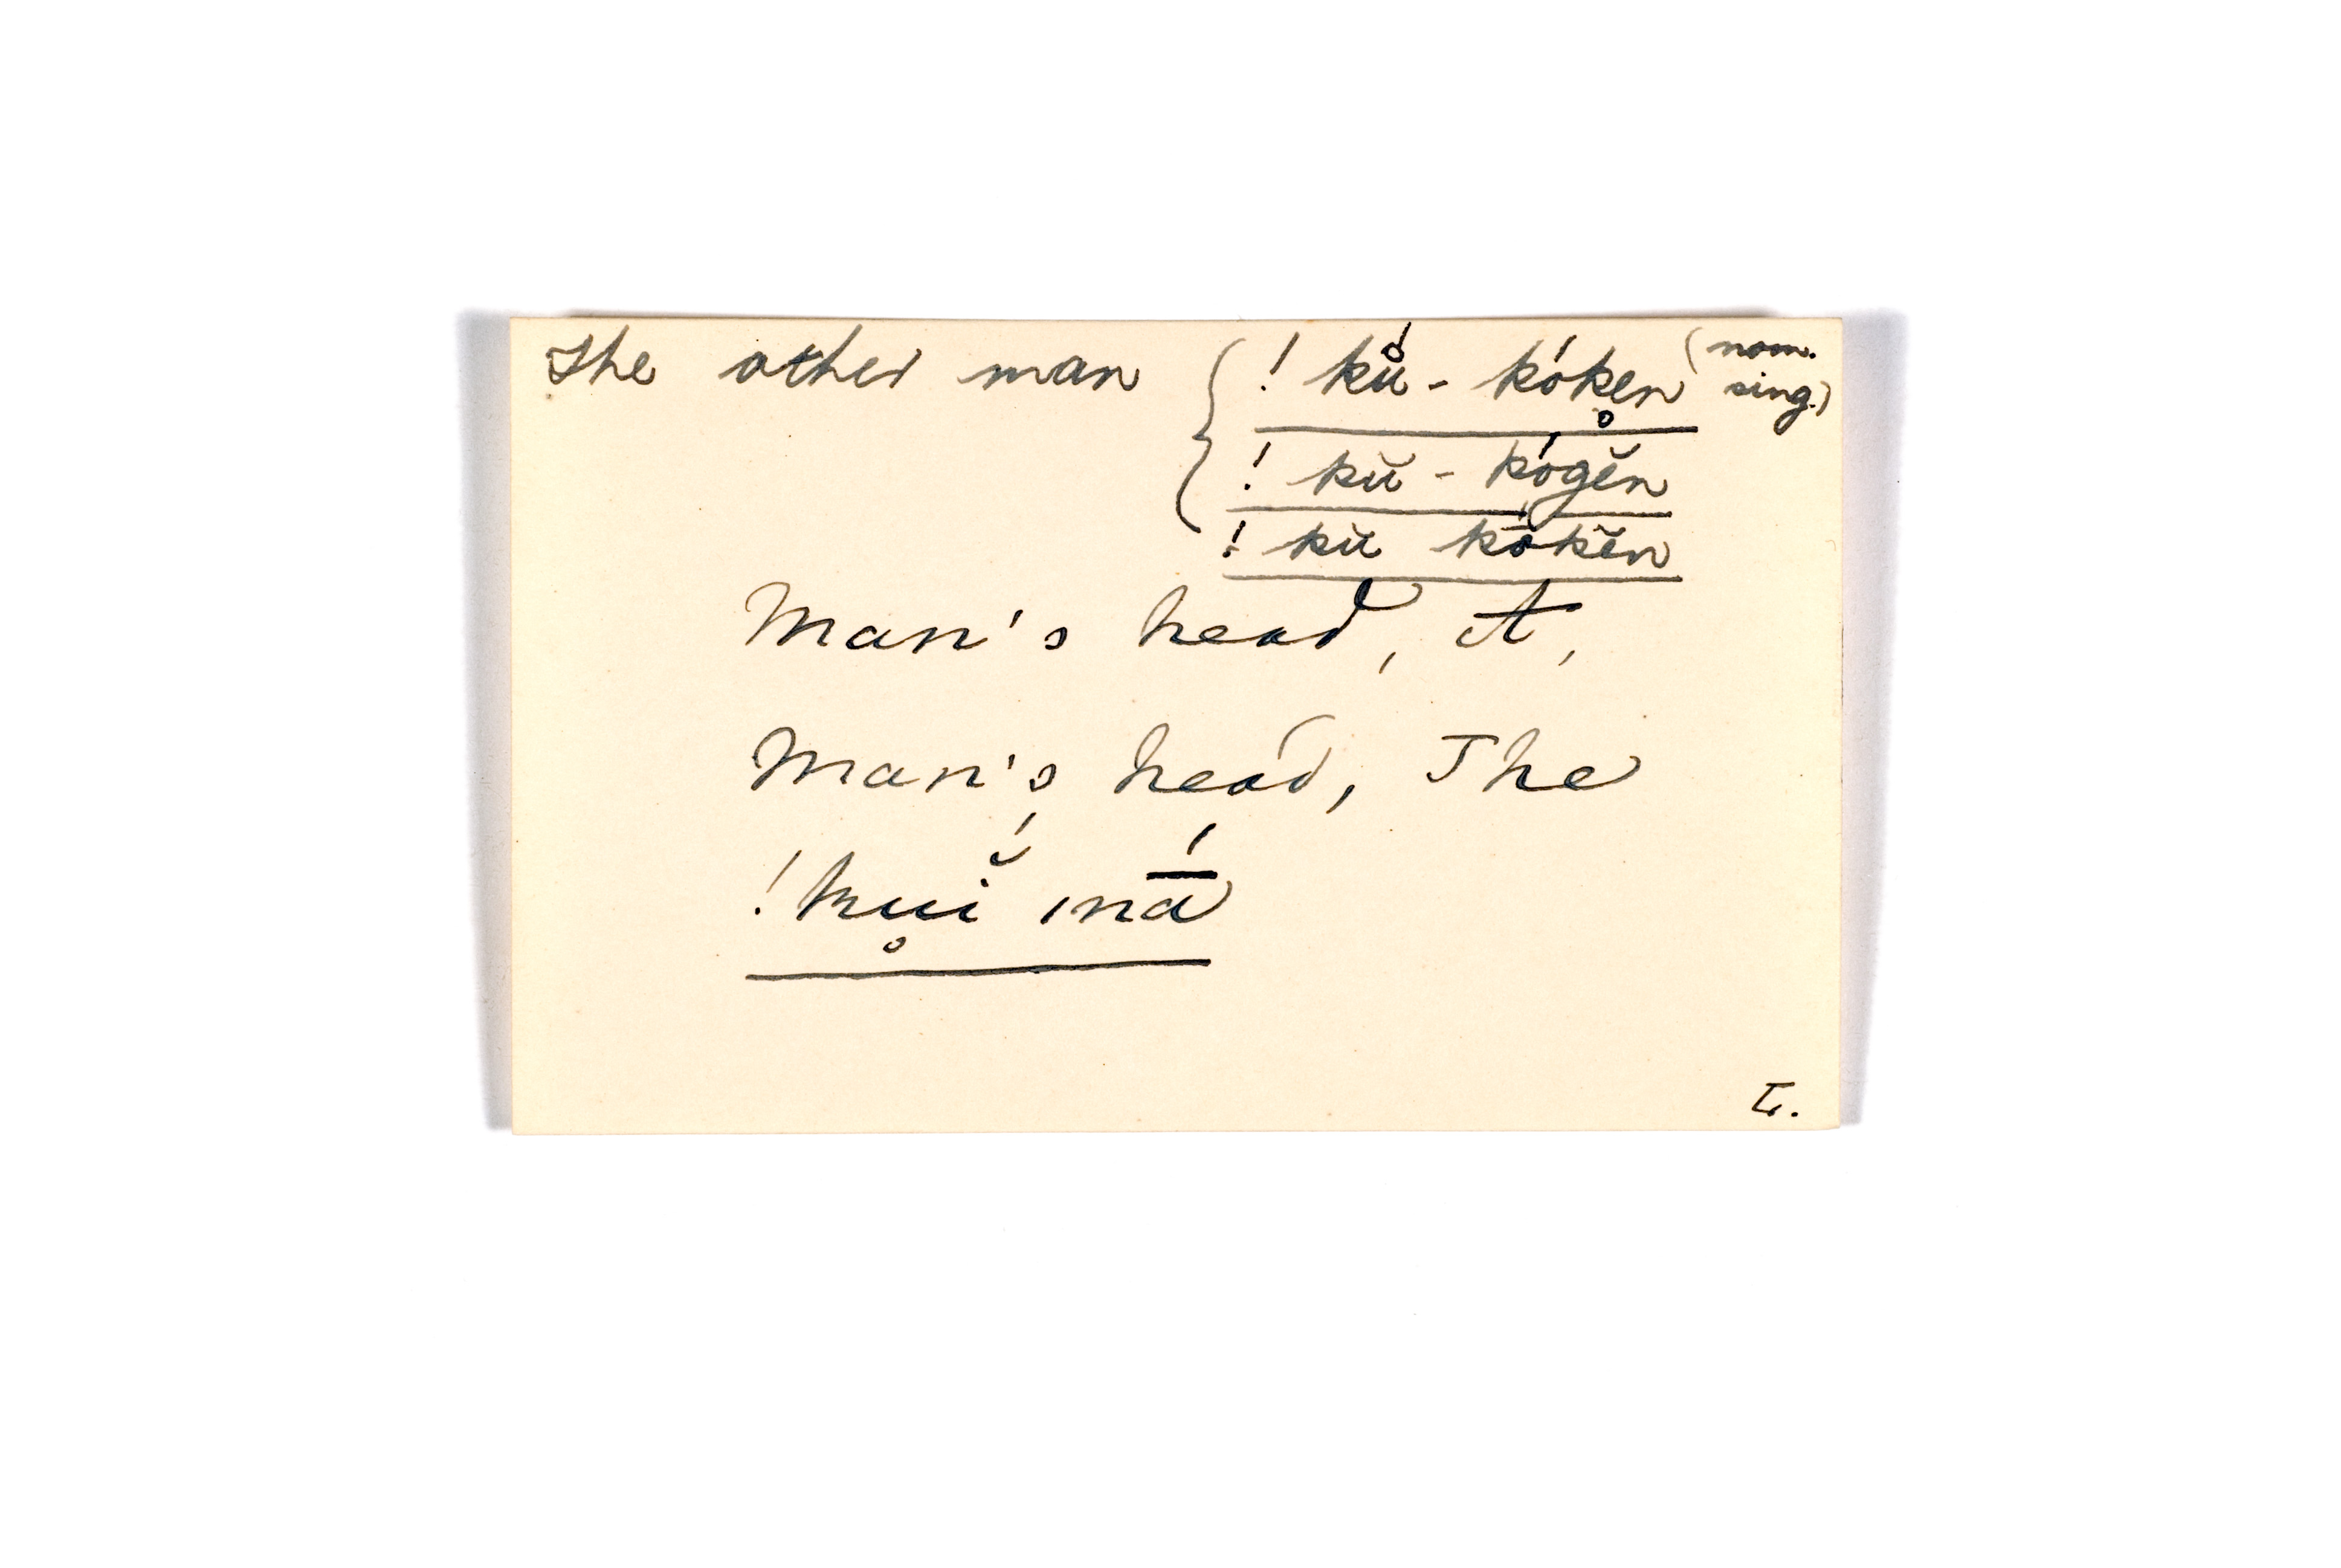 The other man { !kŭ̊́ - kóke̥n (nom. sing.)
!kŭ - kógĕn
!kŭ kṓkĕn
Man's head, A,
Man's head, The
!ku̥ĭ́ ınā́
L.